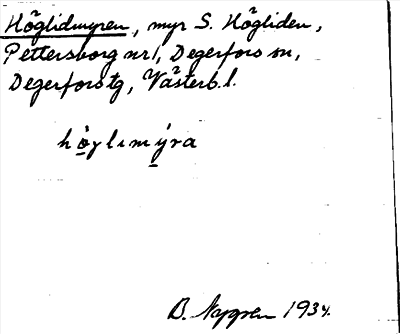 Höglidmyren, myr S. Högliden,
Pettersborg nr 1, Degerfors sn,
Degerfors tg, Västerb. l.
hö̱γlımý̱ra
B. Nygren 1934.